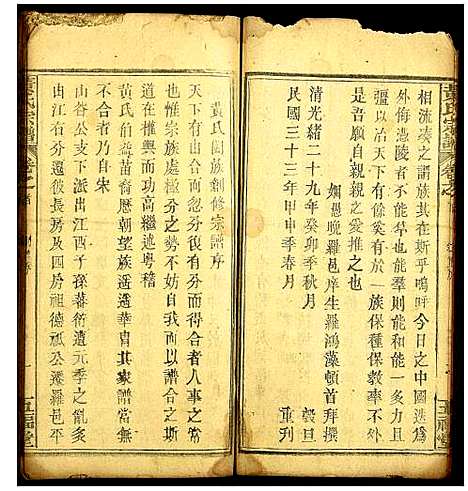 相流湊之謂族其在斯乎嗚呼今日之中國迭爲
外侮憑陵者不能羣也能羣則能和能一多力且
彊以冶天下有餘奚有於一族保種保教不外于
吾族願自親親之愛推之也
姻愚晚羅邑庠生羅鴻藻頓首拜撰
清光緒二十九年癸卯季秋月 穀旦
民國三十三年甲申季春月 重刋
黃氏宗譜
五福堂
黃氏闔族創修宗譜序
天下有由合而忽分復有分而得合者人事之常
也惟宗族分之勢不妨自我而以譜合之斯
創在權輿而功高繼述粵稽
黃氏伯益苗裔歷朝望族遥遥華胄其家譜當無
不合者乃自宋
山谷公支下派出江西子孫蕃衍遭元季之亂爰
由江省分遷長沙及四房祖德祇公遷羅邑平
黃氏宗譜
五福堂